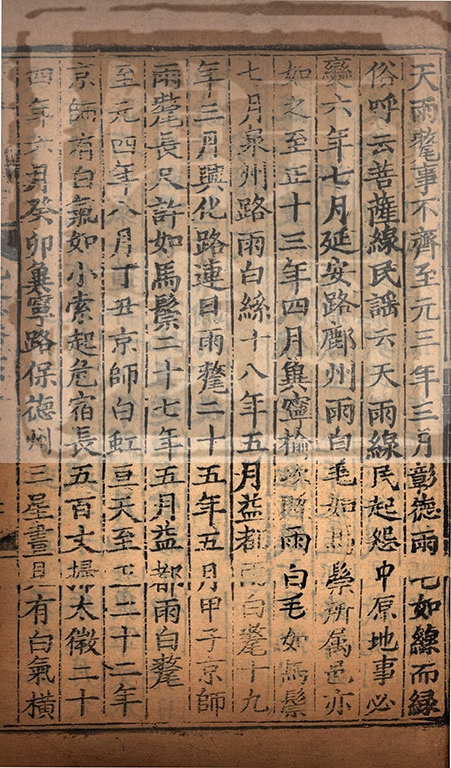 天雨氂事不齊至元三年三月彰德雨七如線而綠
俗呼云菩薩線民謡云天雨線民起怨中原地事必
變六年七月延安路鄜州雨白毛如馬鬃所属邑亦
如之至正十三年四月冀寧榆次雨白毛如馬鬃
七月泉州路雨白絲十八年五月益都雨白氂十九
年三月興化路連日雨氂二十五年五月甲子京師
雨氂長尺許如馬鬃二十七年五月益都雨白氂
至元四年八月丁丑京師白虹亘天至正二十二年
京師有白氣如小索起危宿長五百丈掃太微二十
四年六月癸卯冀寧路保德州三星晝見有白氣橫